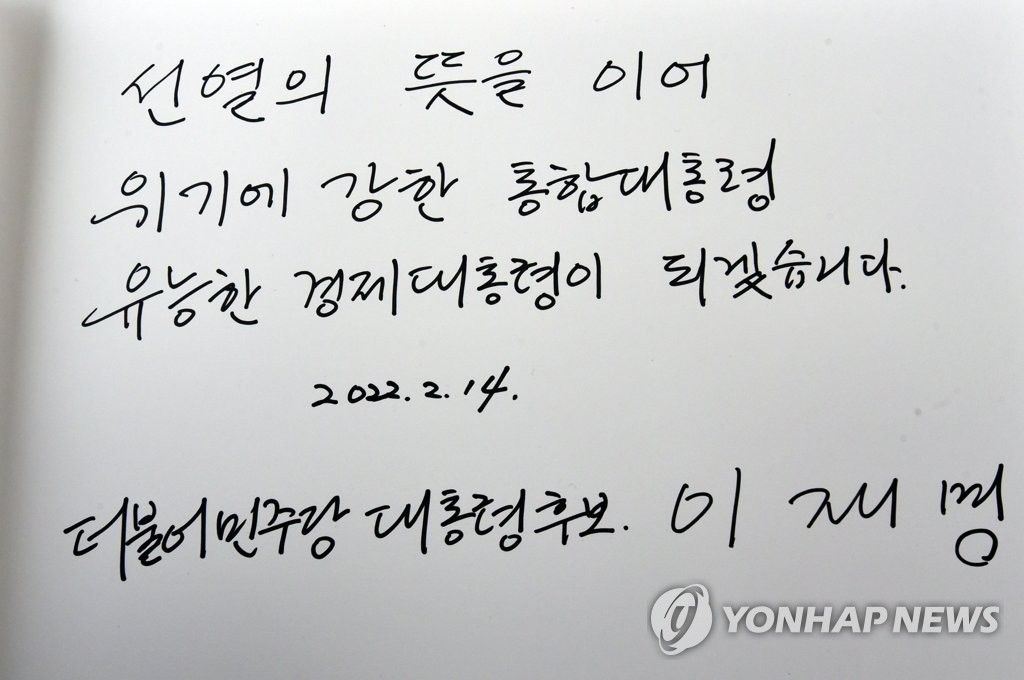 선열의 뜻을 이어
위기에 강한 통합대통령
유능한 경제대통령이 되겠습니다.
2022.2.14.
더불어민주당 대통령후보. 이재명
YONHAP NEWS